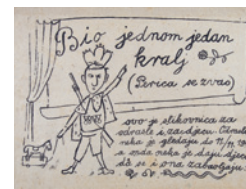 Bio jednom jedan
kralj
(Perica se zvao)
ovo je slikovnica za
odrasle i za djecu.
neka je gledaju do
a onda neka je daju djeci
da se i ona zabavljaju